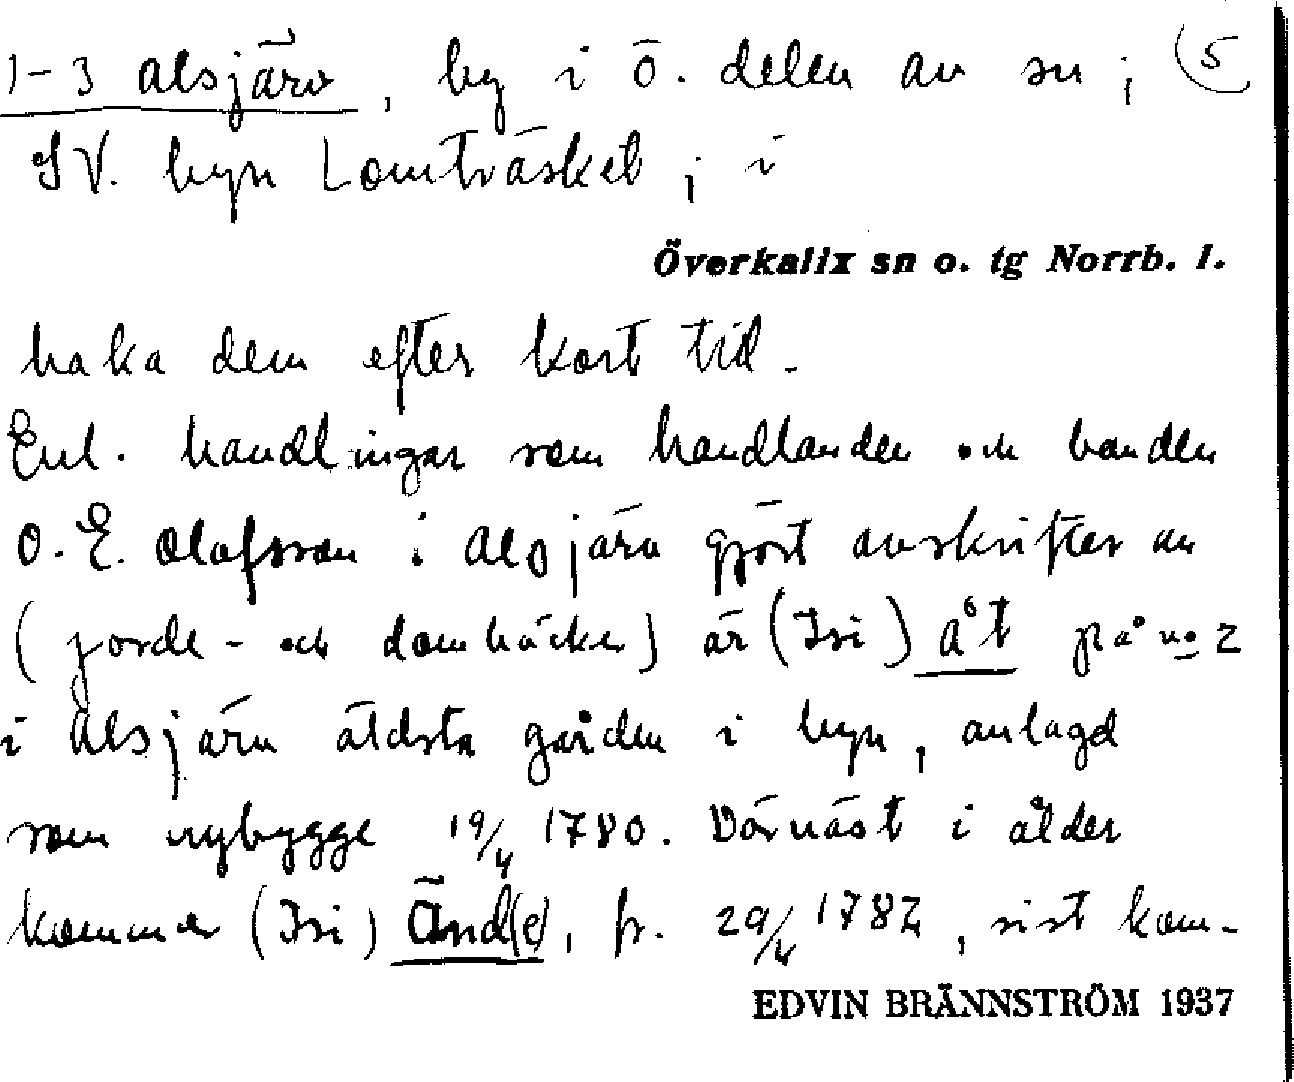 1-3 Alsjärv, by i ö. delen av sn; (5
SV. byn Lomträsket; i
Överkalix sn o. tg Norrb. l.
baka dem efter kort tid.
Enl. handlingar som handlanden och bonden
O. E. Olofsson i Alsjärv gjort avskrifter av
(jorde- och domböcker) är (Isi) åt på no 2
i Alsjärv äldsta gården i byn, anlagd
som nybygge 19/4 1780. Därnäst i ålder
kommer (Isi) Änd(e), fr. 29/4 1782, sist kom-
EDVIN BRÄNNSTRÖM 1937